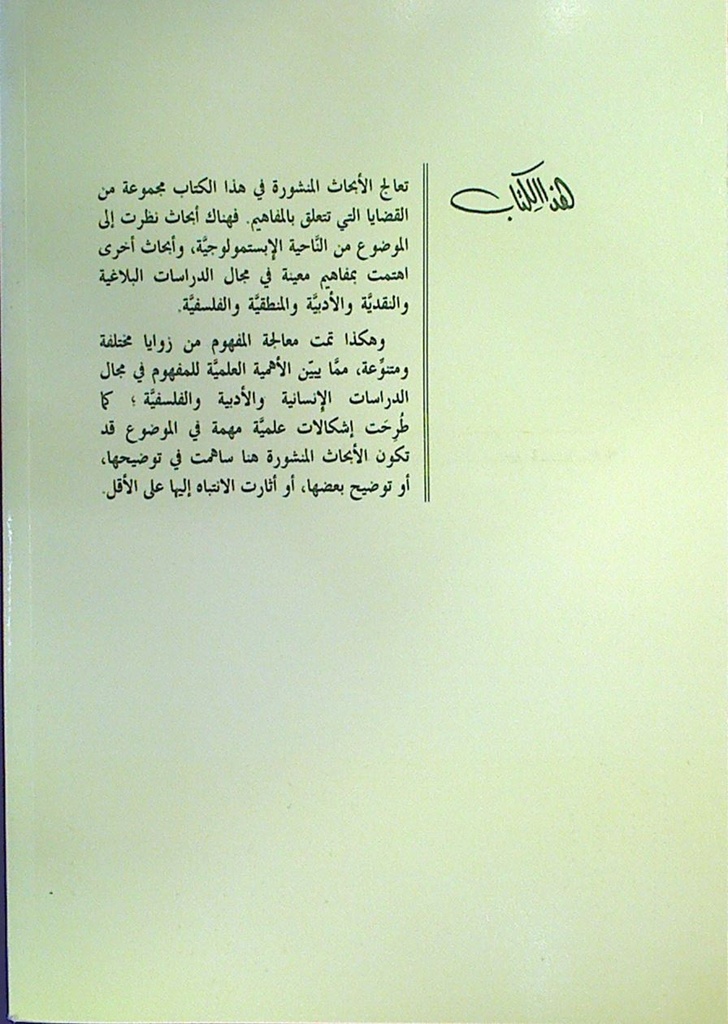 هذا الكتاب
تعالج الأبحاث المنشورة في هذا الكتاب مجموعة من
القضايا التي تتعلق بالمفاهيم. فهناك أبحاث نظرت إلى
الموضوع من النَّاحية الإبستمولوجيَّة، وأبحاث أخرى
اهتمت بمفاهيم معينة في مجال الدراسات البلاغية
والنقديَّة والأدبيَّة والمنطقيَّة والفلسفيَّة.
وهكذا تمت معالجة المفهوم من زوايا مختلفة
ومتنوِّعة، ممَّا يبيّن الأهمية العلميَّة للمفهوم في مجال
الدراسات الإنسانية والأدبية والفلسفيَّة ؛ كما
طُرِحَت إشكالات علميَّة مهمة في الموضوع قد
تكون الأبحاث المنشورة هنا ساهمت في توضيحها،
أو توضيح بعضها، أو أثارت الانتباه إليها على الأقل.